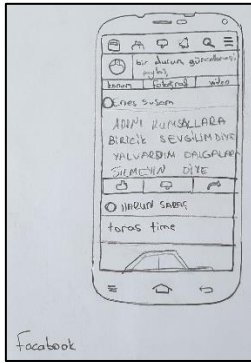 bir durum güncellemesi
paylaş
konum fotoğraf video
Enes Susam
ADINI KUMSALLARA
BİRİCİK SEVGİLİM DİYE
YALVARDIM DALGALARA
SİLMEYİN DİYE
HARUN SARAÇ
toros time
Facabook